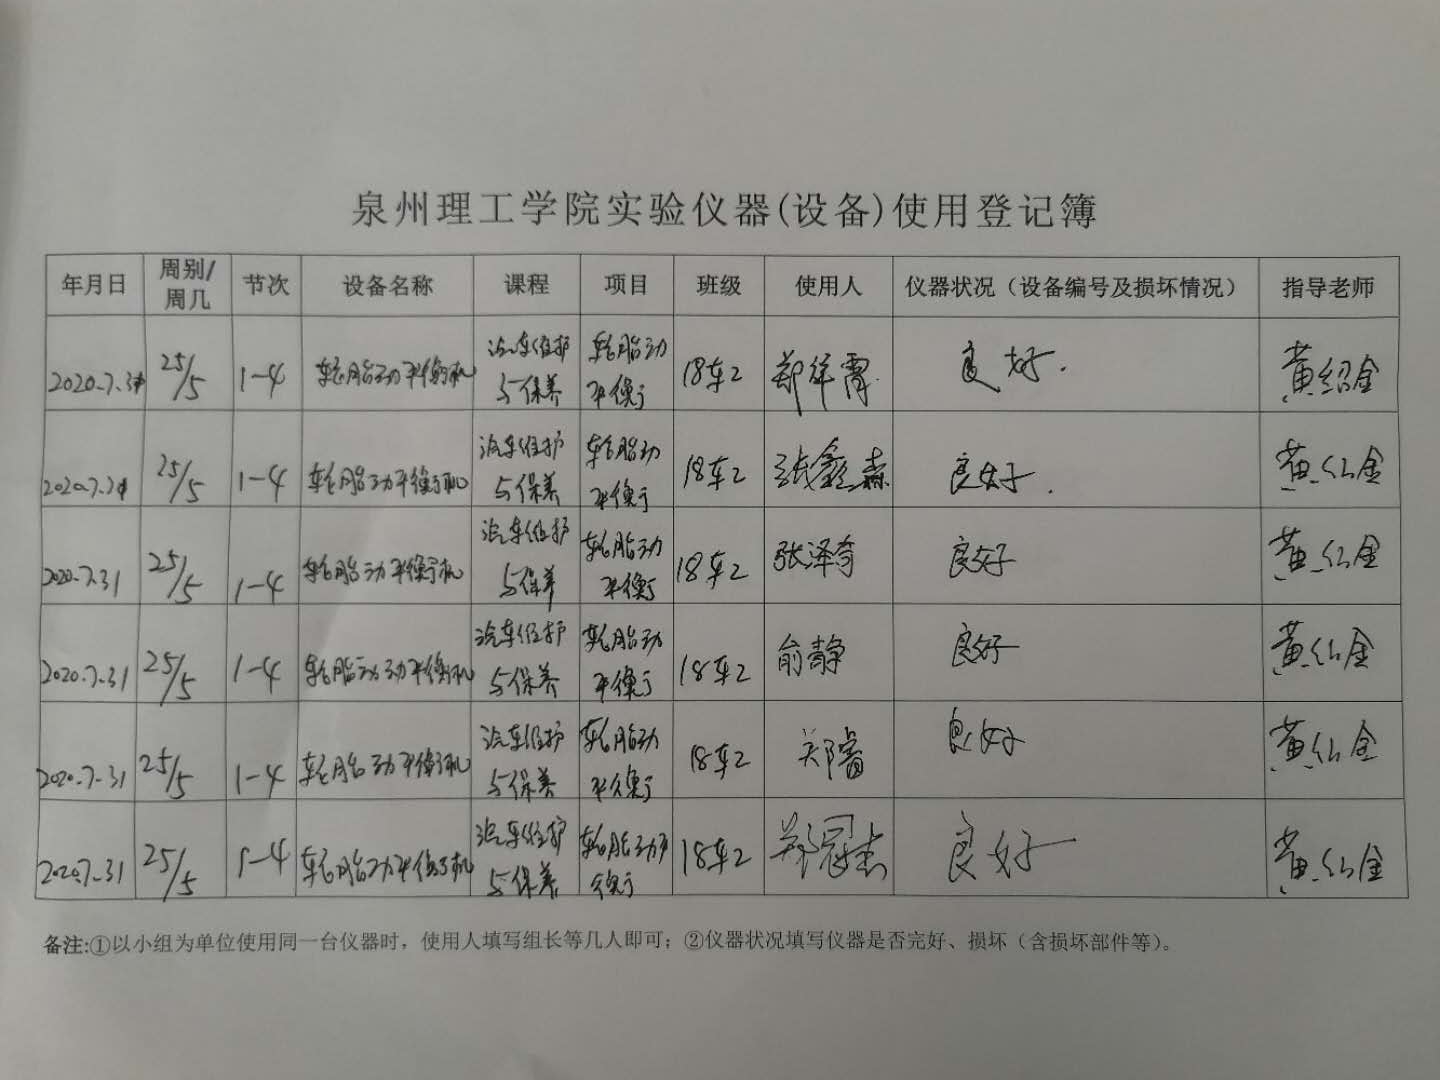 泉州理工学院实验仪器(设备)使用登记簿
年月日 周别/周几 节次 设备名称 课程 项目 班级 使用人 仪器状况（设备编号及损坏情况） 指导老师
2020.7.31 25/5 1-4 轮胎动平衡机 汽车维护与保养 轮胎动平衡 18车2 良好. 黄绍金
2020.7.31 25/5 1-4 轮胎动平衡机 汽车维护与保养 轮胎动平衡 18车2 张鑫森 良好. 黄绍金
2020.7.31 25/5 1-4 轮胎动平衡机 汽车维护与保养 轮胎动平衡 18车2 张泽奇 良好 黄绍金
2020.7.31 25/5 1-4 轮胎动动平衡机 汽车维护与保养 轮胎动平衡 18车2 俞静 良好 黄绍金
2020.7.31 25/5 1-4 轮胎动平衡机 汽车维护与保养 轮胎动平衡 18车2 郑睿 良好 黄绍金
2020.7.31 25/5 1-4 轮胎动平衡机 汽车维护与保养 轮胎动平衡 18车2 郑冠杰 良好 黄绍金
备注:①以小组为单位使用同一台仪器时，使用人填写组长等几人即可；②仪器状况填写仪器是否完好、损坏（含损坏部件等）。